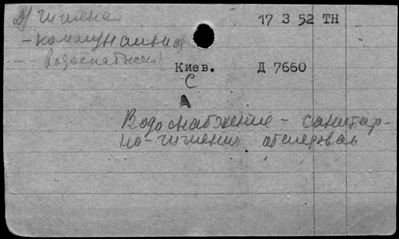 Гигиена 17 3 52 ТН
- коммунальная
- - водоснабжение
Киев. Д 7660
С
Д
Водоснабжение - санитар-
но-гигиенич обследован